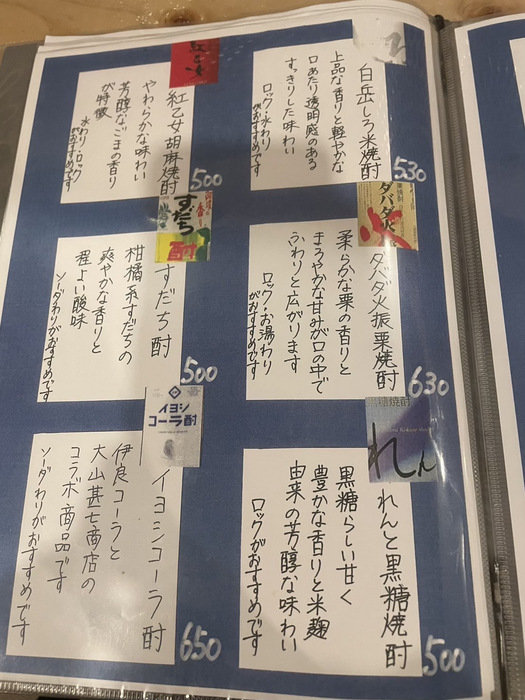 白岳しろ米焼酎
上品な香りと軽やかな
口あたり透明感のある
すっきりした味わい
ロック・水わり
がおすすめです
530
紅乙女
紅乙女胡麻焼酎
やわらかな味わい
芳醇なごまの香り
が特徴
水わり・ロック
がおすすめです
500
ダバダ火振
ダバダ火振栗焼酎
柔らかな栗の香りと
まろやかな甘みが口の中で
ふわりと広がります
ロック・お湯わり
がおすすめです
630
すだち
酎
すだち酎
柑橘系すだちの
爽やかな香りと
程よい酸味
ソーダわりがおすすめです
500
黒糖焼酎
れん
れんと黒糖焼酎
黒糖らしい甘く
豊かな香りと米麹
由来の芳醇な味わい
ロックがおすすめです
500
イヨシ
コーラ酎
イヨシコーラ酎
伊良コーラと
大山甚七商店の
コラボ商品です
ソーダわりがおすすめです
650